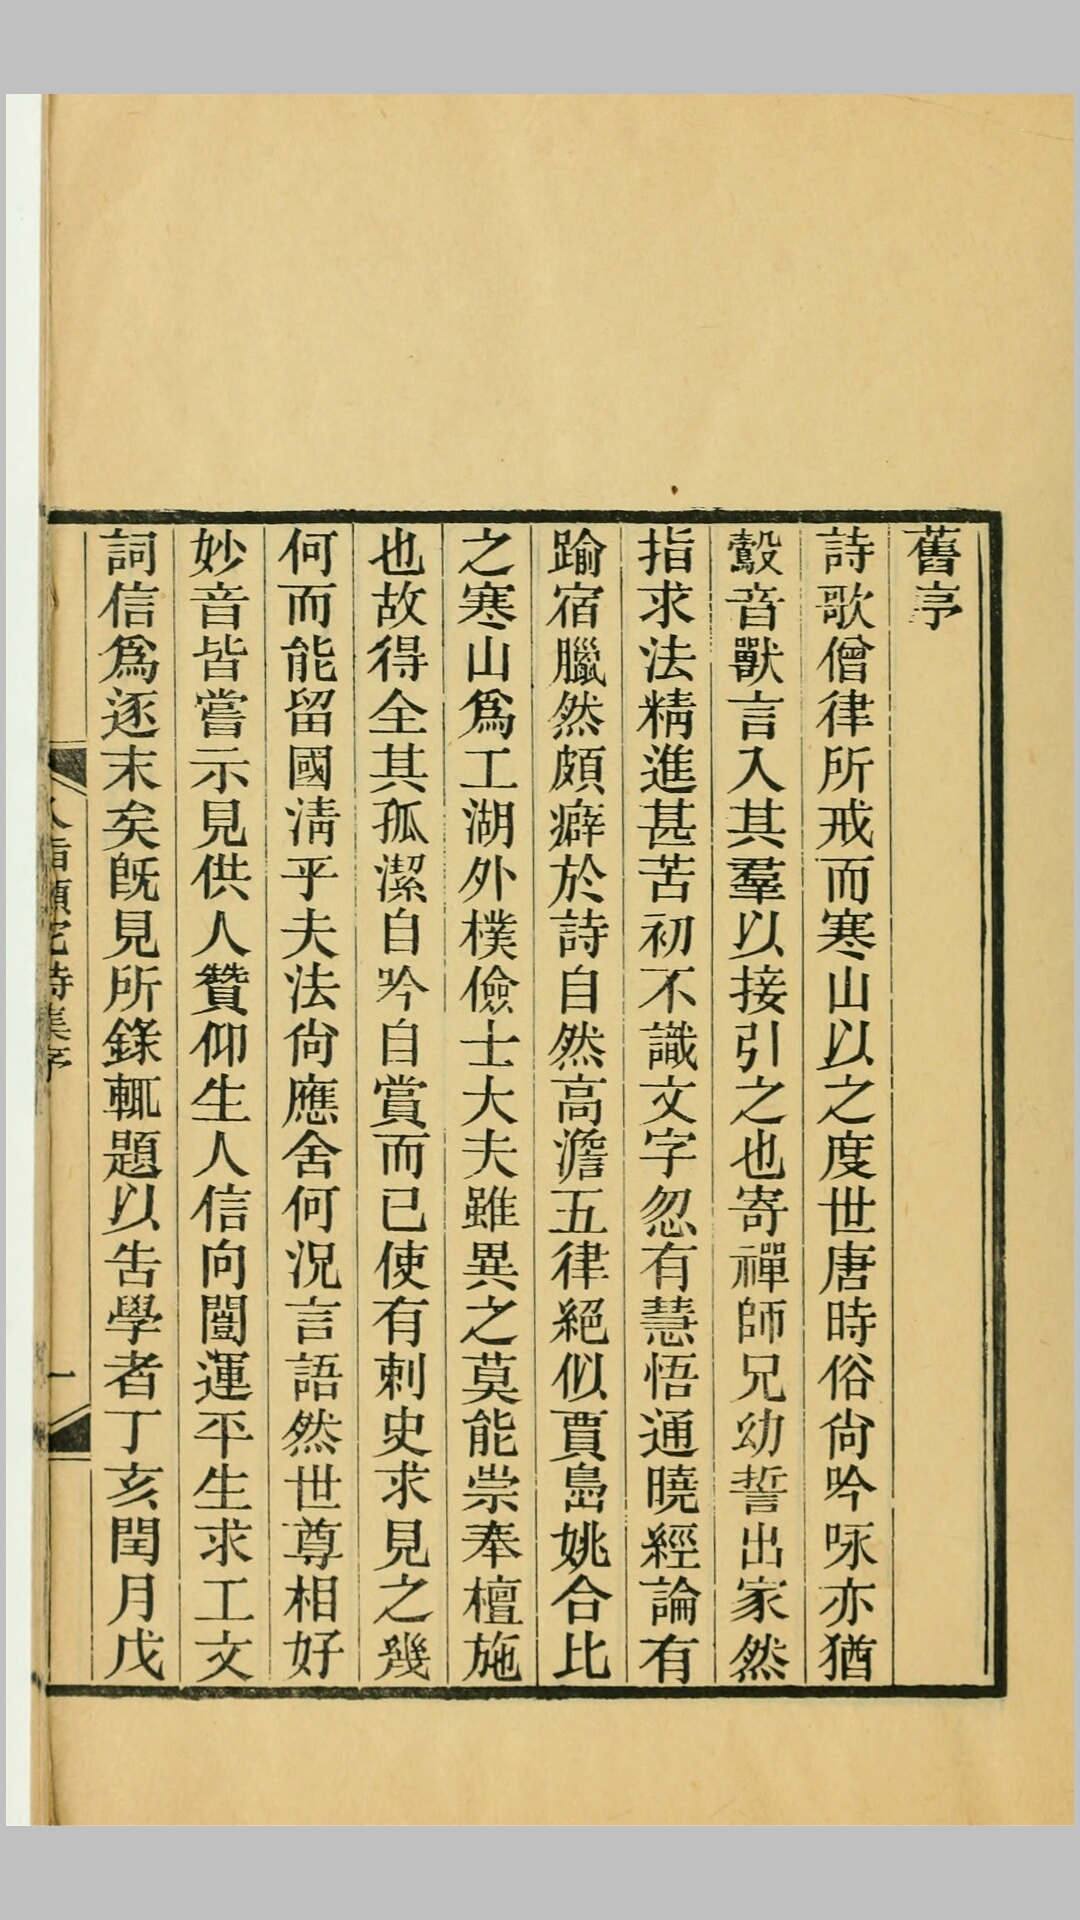 舊序
詩歌僧律所戒而寒山以之度世唐時俗尙吟咏亦猶
鷇音獸言入其羣以接引之也寄禪師兄幼誓出家然
指求法精進甚苦初不識文字忽有慧悟通曉經論有
踰宿臘然頗癖於詩自然高澹五律絕似賈島姚合比
之寒山爲工湖外樸儉士大夫雖異之莫能崇奉檀施
也故得全其孤潔自吟自賞而已使有刺史求見之幾
何而能留國淸乎夫法尙應舍何況言語然世尊相好
妙音皆嘗示見供人贊仰生人信向闓運平生求工文
詞信爲逐末矣旣見所錄輒題以告學者丁亥閏月戊
八指頭陀詩集序
一